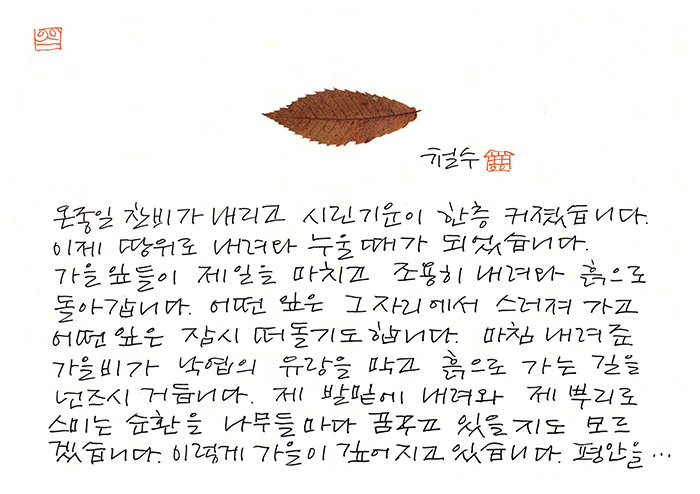 철수
온종일 찬비가 내리고 시린기운이 한층 커졌습니다.
이제 땅위로 내려와 누울때가 되었습니다.
가을잎들이 제일을 마치고 조용히 내려와 흙으로
돌아갑니다. 어떤 잎은 그자리에서 스러져 가고
어떤잎은 잠시 떠돌기도합니다. 마침 내려준
가을비가 낙엽의 유랑을 막고 흙으로 가는 길을
넌즈시 거듭니다. 제 발밑에 내려와 제 뿌리로
스미는 순환을 나무들마다 꿈꾸고 있을지도 모르
겠습니다. 이렇게 가을이 깊어지고있습니다. 평안을…